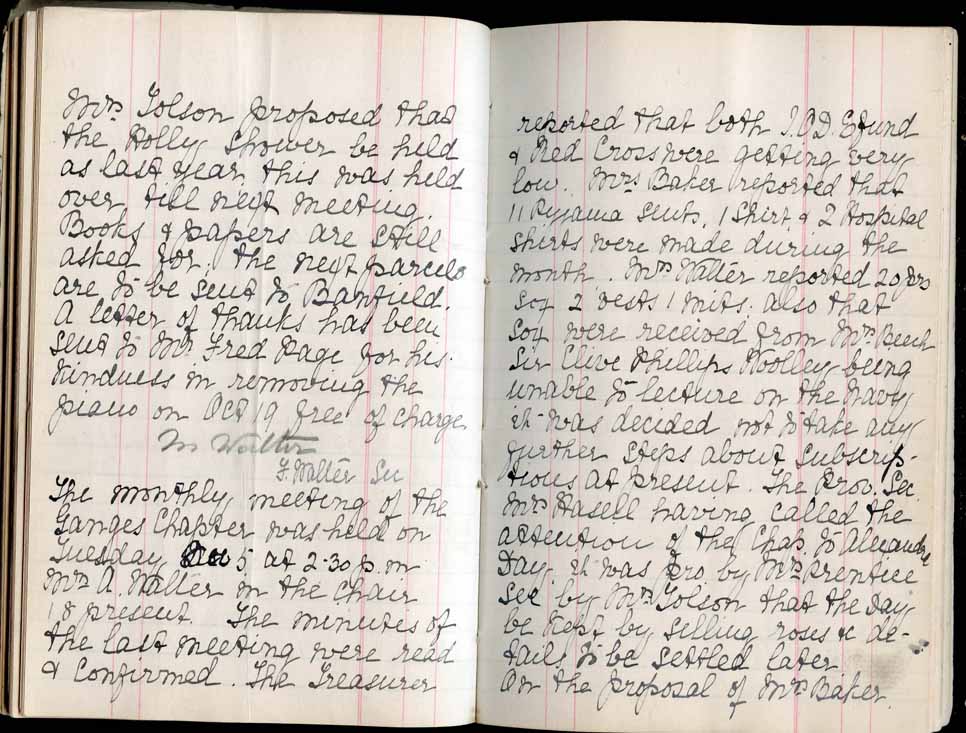 Mrs Tolson proposed that
the Holly Shower be held
as last year, this was held
over till next meeting.
Books & papers are still
asked for, the next parcels
are to be sent to Banfield.
A letter of thanks has been
sent to Mr Fred Page for his
kindness in removing the
piano on Oct 19 free of charge
M Walter
F. Walter Sec
The monthly meeting of the
Ganges Chapter was held on
Tuesday 5 at 2.30 p.m
Mrs A. Walter in the Chair
18 present. The minutes of
the last meeting were read
& Confirmed. The Treasurer
reported that both I.O.D.E fund
& Red Cross were getting very
low. Mrs Baker reported that
11 Pyjama Suits, 1 Shirt, & 2 Hospital
shirts were made during the
month. Mrs Walter reported 20 prs
sox 2 vests 1 mits. also that
sox were received from Mrs Beech
Sir Clive Phillips Wolley being
unable to lecture on the Navy
it was decided not to take any
further steps about subscrip-
tions at present. The Prov. Sec.
Mrs Hasell having called the
attention of the Chap. to Alexandra
Day, it was pro by Mrs Prentice
Sec by Mrs Tolson that the Day
be kept by selling roses & de-
tails to be settled later
On the proposal of Mrs Baker